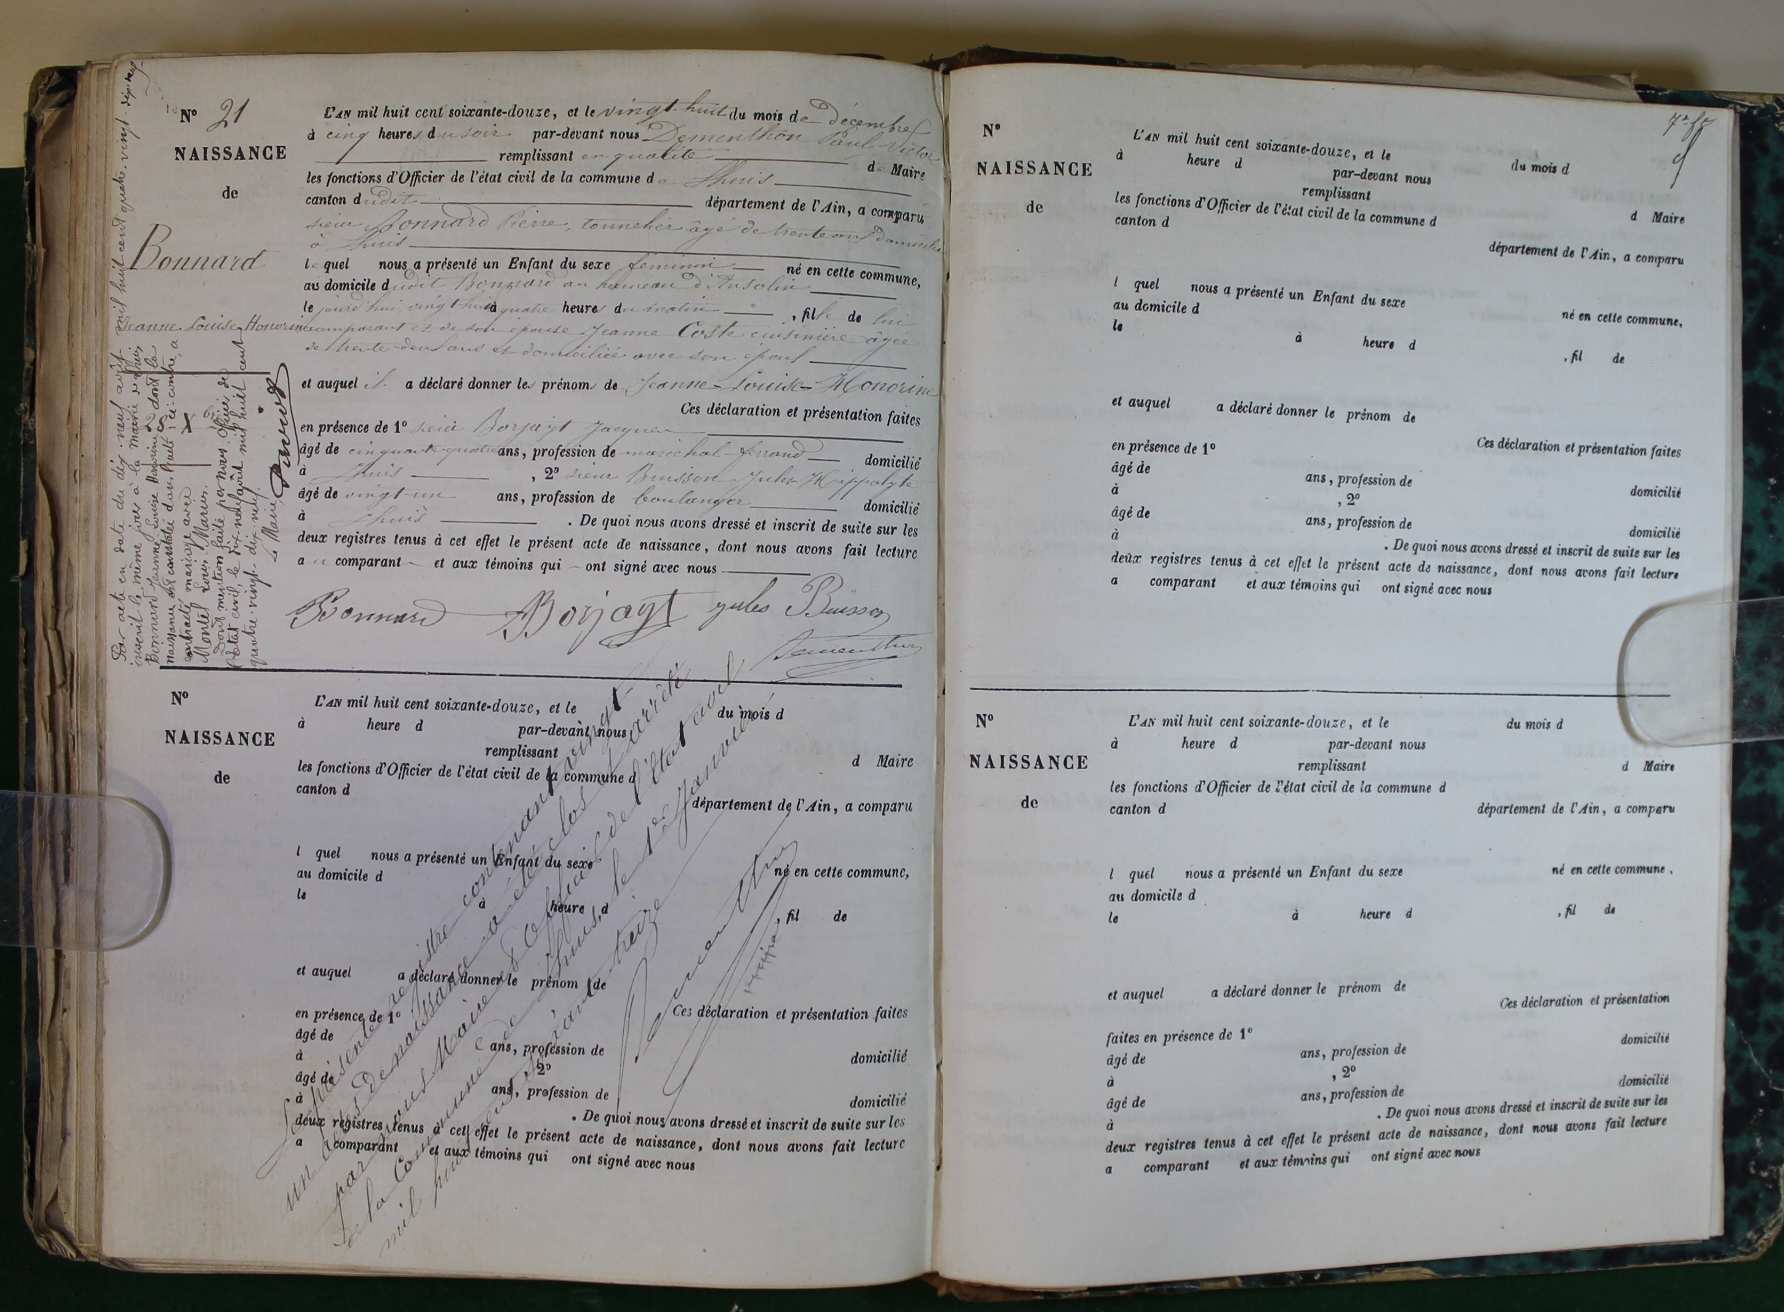 N° 21
NAISSANCE
de
Bonnard
Jeanne Louise Honorine
L'AN mil huit cent soixante-douze, et le vingt-huit du mois de décembre
à cinq heures du soir par-devant nous Dementhon Paul Victor
remplissant en qualité de Maire
les fonctions d'Officier de l'état civil de la commune de Lhuis
canton dudit département de l'Ain, a comparu
sieur Bonnard Pierre, tonnelier âgé de trente ans domicilié
à Lhuis
lequel nous a présenté un Enfant du sexe féminin né en cette commune,
au domicile dudit Bonnard au hameau d'Ansolin
le jourd'hui vingt huit à quatre heures du matin , fille de lui
comparant et de son épouse Jeanne Coste cuisinière âgée
de trente deux ans et domiciliée avec son époux
et auquel il a déclaré donner les prénoms de Jeanne-Louise-Honorine
Ces déclaration et présentation faites
en présence de 1° sieur Borjayt Jacques
âgé de cinquante-quatre ans, profession de maréchal-ferrand domicilié
à Lhuis , 2° sieur Buisson Jules Hippolyte
âgé de vingt-un ans, profession de boulanger domicilié
à Lhuis . De quoi nous avons dressé et inscrit de suite sur les
deux registres tenus à cet effet le présent acte de naissance, dont nous avons fait lecture
au comparant et aux témoins qui ont signé avec nous
Bonnard Borjayt Jules Buisson
Dementhon
Par acte en date du dix neuf août mil huit cent quatre-vingt-dix neuf
inscrit le même jour à la Mairie de Lhuis,
Bonnard Jeanne Louise Honorine dont la
naissance est constatée dans l'acte ci-contre, a
contracté mariage avec
Montel Louis Marius.
Dont mention faite par nous officier de
l'état civil, le dix neuf août mil huit cent
quatre-vingt-dix neuf
Le Maire,
N°
NAISSANCE
de
L'AN mil huit cent soixante-douze, et le du mois d
à heure d par-devant nous
remplissant d Maire
les fonctions d'Officier de l'état civil de la commune d
canton d département de l'Ain, a comparu
l quel nous a présenté un Enfant du sexe né en cette commune,
au domicile d
le à heure d , fil de
et auquel a déclaré donner le prénom de
Ces déclaration et présentation faites
en présence de 1°
âgé de ans, profession de domicilié
à , 2°
âgé de ans, profession de domicilié
à . De quoi nous avons dressé et inscrit de suite sur les
deux registres tenus à cet effet le présent acte de naissance, dont nous avons fait lecture
a comparant et aux témoins qui ont signé avec nous
Le présent registre contenant vingt-
un actes de naissance a été clos et arrêté
par nous Maire et Officier de l'état civil
de la Commune de Lhuis, le 1er Janvier
mil huit cent soixante treize
Dementhon
N°
NAISSANCE
de
L'AN mil huit cent soixante-douze, et le du mois d
à heure d par-devant nous
remplissant d Maire
les fonctions d'Officier de l'état civil de la commune d
canton d département de l'Ain, a comparu
l quel nous a présenté un Enfant du sexe né en cette commune,
au domicile d
le à heure d , fil de
et auquel a déclaré donner le prénom de
Ces déclaration et présentation faites
en présence de 1°
âgé de ans, profession de domicilié
à , 2°
âgé de ans, profession de domicilié
à . De quoi nous avons dressé et inscrit de suite sur les
deux registres tenus à cet effet le présent acte de naissance, dont nous avons fait lecture
a comparant et aux témoins qui ont signé avec nous
N°
NAISSANCE
de
L'AN mil huit cent soixante-douze, et le du mois d
à heure d par-devant nous
remplissant d Maire
les fonctions d'Officier de l'état civil de la commune d
canton d département de l'Ain, a comparu
l quel nous a présenté un Enfant du sexe né en cette commune,
au domicile d
le à heure d , fil de
et auquel a déclaré donner le prénom de
Ces déclaration et présentation
faites en présence de 1° domicilié
âgé de ans, profession de
à , 2° domicilié
âgé de ans, profession de
à . De quoi nous avons dressé et inscrit de suite sur les
deux registres tenus à cet effet le présent acte de naissance, dont nous avons fait lecture
a comparant et aux témoins qui ont signé avec nous